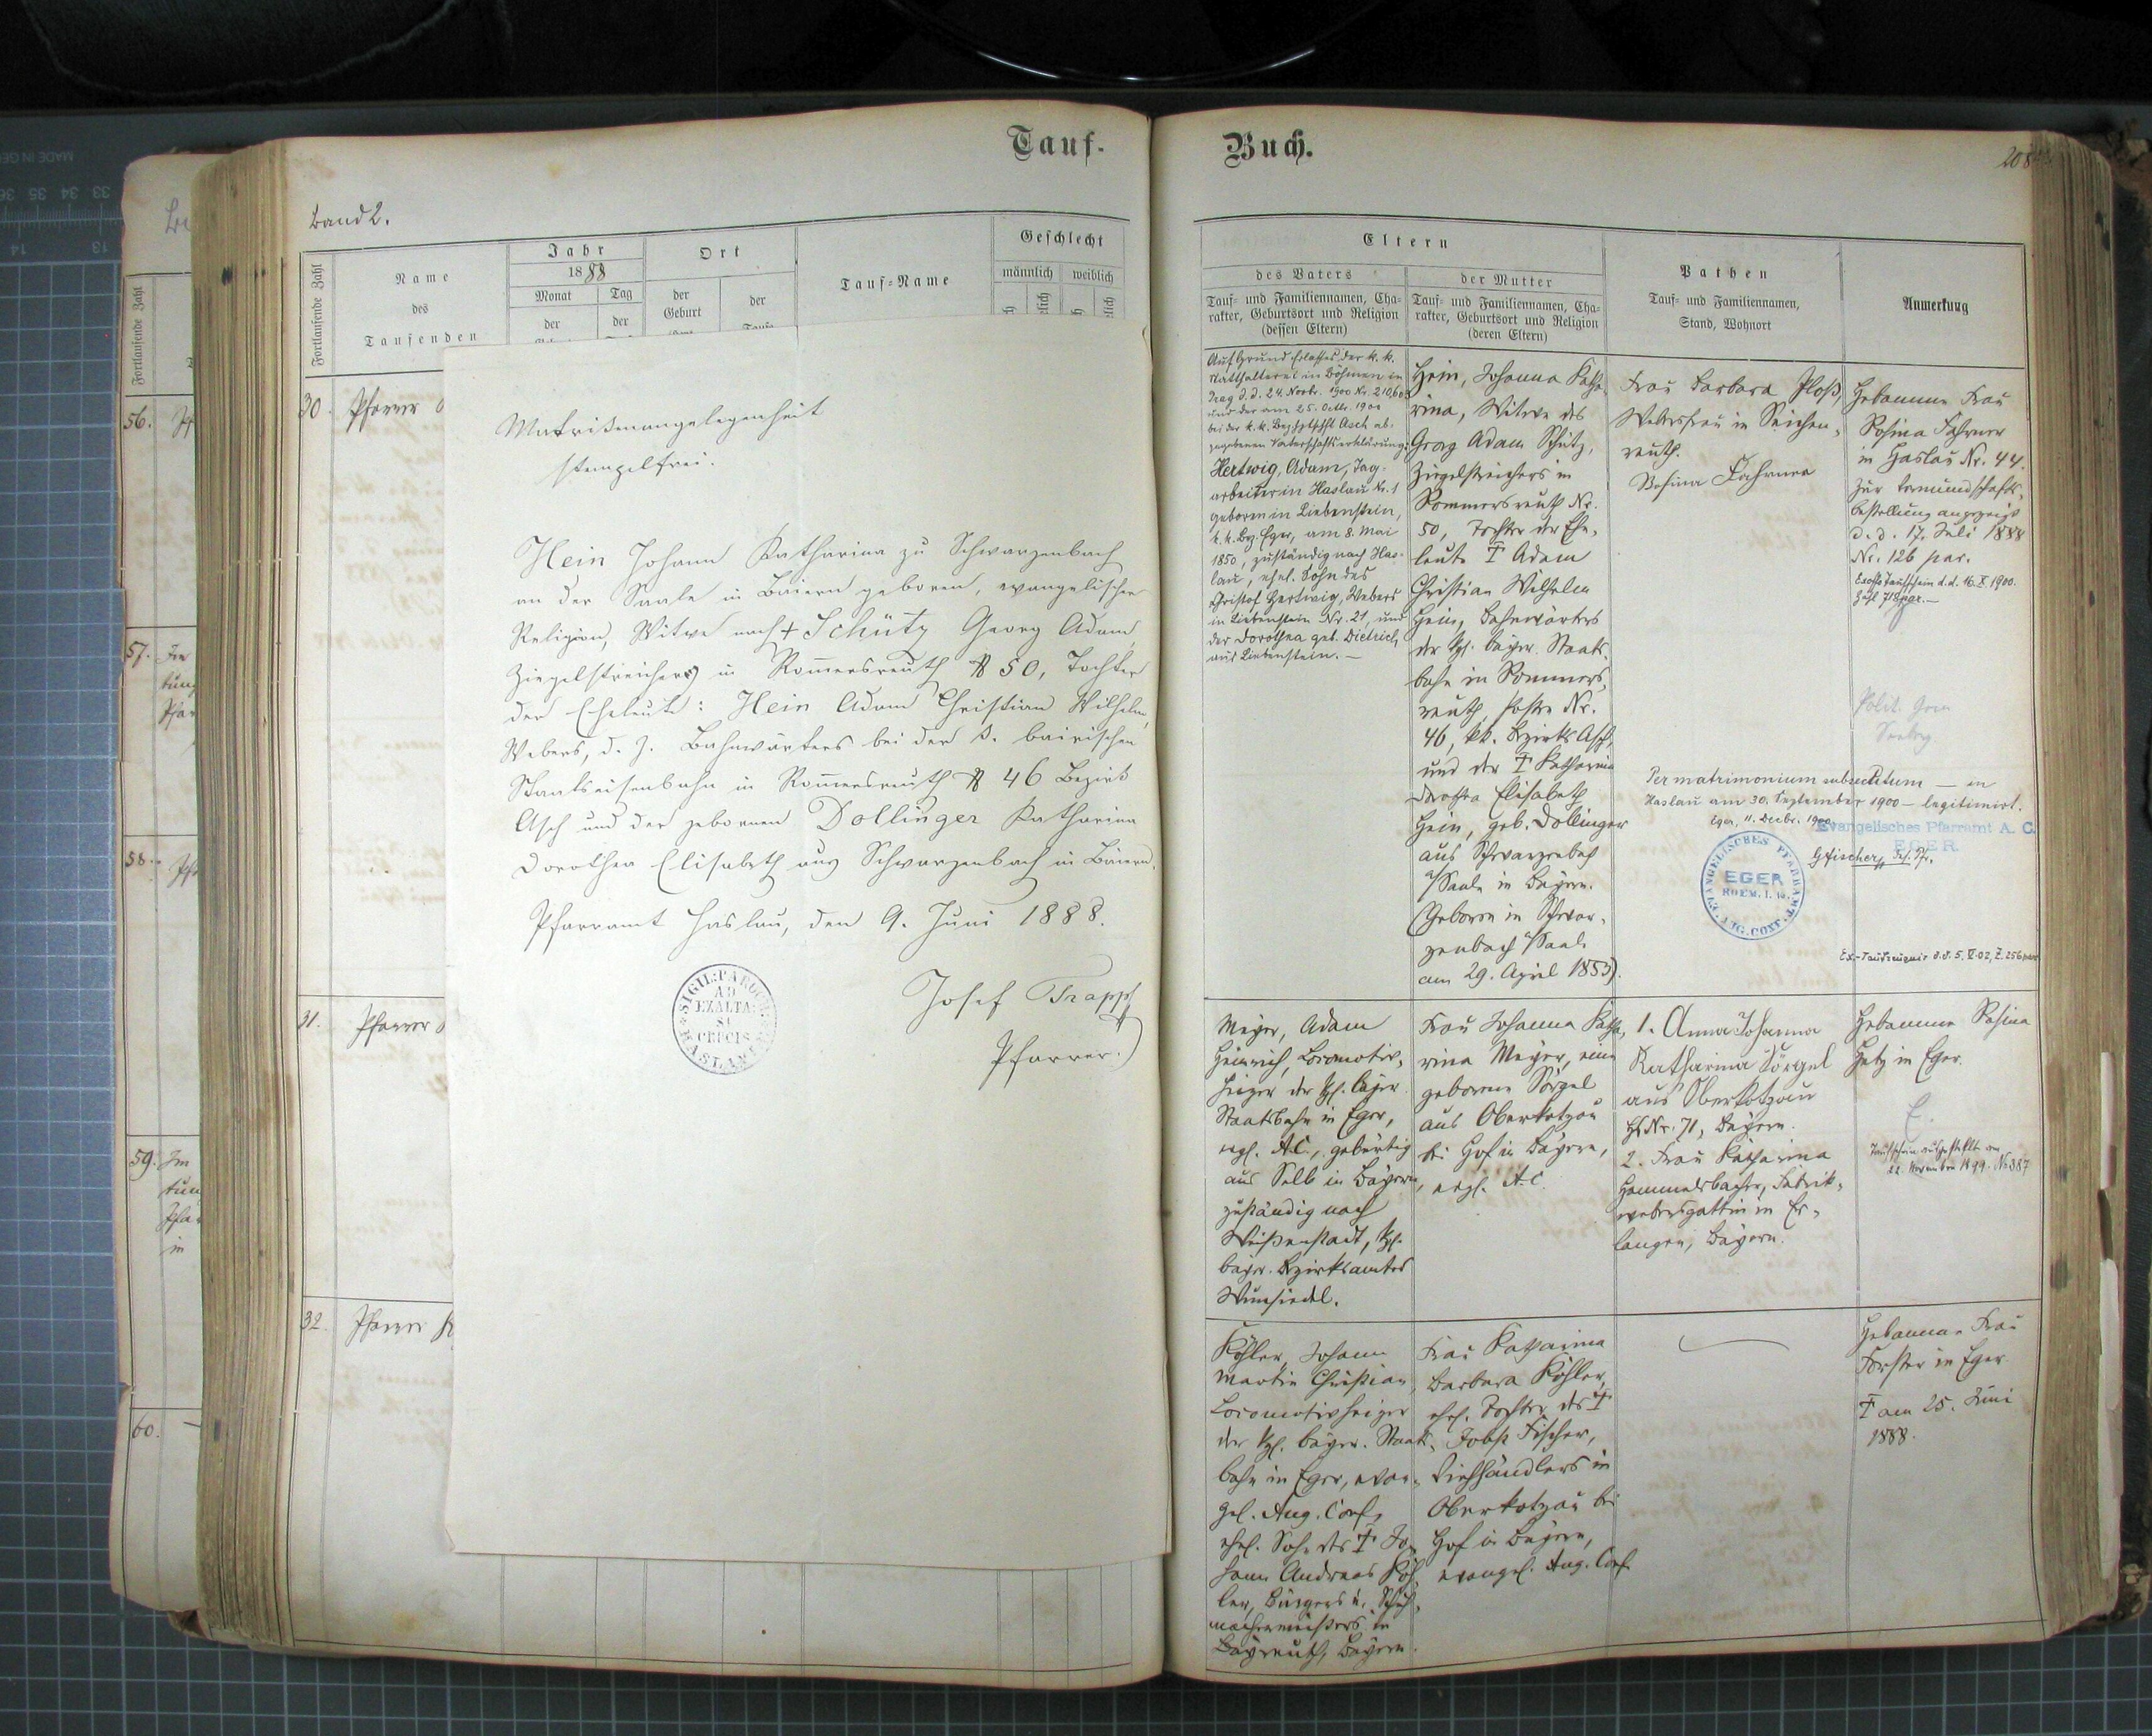 Tauf-
Band 2.
Fortlaufende Zahl
Name
des
Taufenden
Jahr
1888
Monat
Tag
der
der
Ort
der
Geburt
der
Taufe
Tauf-Name
Geschlecht
männlich
weiblich
Fortlaufende Zahl
56.
57.
58.
59.
60.
30.
Pfarrer
31.
Pfarrer
32.
Pfarrer
Matrikenangelegenheit
stempelfrei.
Hein Johann Katharina zu Schwarzenbach
an der Saale in Baiern geboren, evangelischer
Religion, Witwe nach † Schütz Georg Adam,
Ziegelstreichers in Rom̄ersreuth № 50, Tochter
der Eheleute: Hein Adam Christian Wilhelm,
Webers, d. Z. Bahnwärters bei der k. bairischen
Staatseisenbahn in Rom̄ersreuth № 46 Bezirk
Asch und der gebornen Dollinger Katharina
Dorothea Elisabeth aus Schwarzenbach in Baiern.
Pfarramt Haslau, den 9. Juni 1888.
SIGIL: PAROCH:
AD
EXALTA:
St
CRUCIS
HASLAV
Josef Trapp
Pfarrer.
Buch.
208
Eltern
des Vaters
Tauf- und Familiennamen, Cha-
rakter, Geburtsort und Religion
(dessen Eltern)
der Mutter
Tauf- und Familiennamen, Cha-
rakter, Geburtsort und Religion
(deren Eltern)
Pathen
Tauf- und Familiennamen,
Stand, Wohnort
Anmerkung
Auf Grund Erlasses der k. k.
Statthalterei in Böhmen in
Prag d. d. 24. Novbr. 1900 Nr.
und der am 25. Octbr. 1900
bei der k. k. Bezhptschft Asch ab-
gegebenen Vaterschaftserklärung:
Hertwig, Adam, Tag-
arbeiter in Haslau Nr. 1
geboren in Liebenstein,
k. k. Bez. Eger, am 8. Mai
1850, zuständig nach Has-
lau, ehel. Sohn des
Christof Hertwig, Webers
in Liebenstein Nr. 21, und
der Dorothea geb. Dietrich
aus Liebenstein. —
Hein, Johanna Katha-
rina, Witwe des
Georg Adam Schütz,
Ziegelstreichers in
Rommersreuth Nr.
50, Tochter der Ehe-
leute † Adam
Christian Wilhelm
Hein, Bahnwärters
der kgl. bayer. Staats-
bahn in Rommers-
reuth, Posten Nr.
46, kk. Bezirks Asch,
und der † Katharina
Dorothea Elisabeth
Hein, geb. Dollinger
aus Schwarzenbach
a/Saale in Bayern.
(Geboren in Schwar-
zenbach a/Saale
am 29. April 1853).
Frau Barbara Ploß,
Webersfrau in Seichen-
reuth.
Rosina Fahrner
Hebamme Frau
Rosina Fahrner
in Haslau Nr. 44.
Zur Vormundschafts-
bestellung angezeigt
d. d. 17. Juli 1888
Nr. 126 par.
Exoffo Taufschein d. d. 16. X. 1900.
Zahl 718 par. —
Polit. Gem.
Seeberg
Per matrimonium subsecutum — in
Haslau am 30. September 1900 — legitimirt.
Eger, 11. Decbr. 1900.
Evangelisches Pfarramt A. C.
EGER.
EVANGELISCHES PFARRAMT
EGER
AUG. CONF.
Ex.-Taufzeugnis d. d. 5. V. 02, Z. 256 par.
Meyer, Adam
Heinrich, Locomotiv-
heizer der kgl. bayer.
Staatsbahn in Eger,
evgl. A.C., gebürtig
aus Selb in Bayern,
zuständig nach
Weißenstadt, kgl.
bayer. Bezirksamtes
Wunsiedel.
Frau Johanna Katha-
rina Meyer, eine
geborene Sörgel
aus Oberkotzau
bei Hof in Bayern,
evgl. A.C.
1. Anna Johanna
Katharina Sörgel
aus Oberkotzau
Hs Nr. 71, Bayern.
2. Frau Katharina
Hammelbacher, Fabrik-
webersgattin in Er-
langen, Bayern.
Hebamme Rosina
Hetz in Eger.
E.
Taufschein ausgestellt am
22. November 1899. Nr 387
Köhler, Johann
Martin Christian,
Locomotivheizer
der kgl. bayer. Staats-
bahn in Eger, evan-
gel. Aug. Conf.,
ehel. Sohn des † Jo-
hann Andreas Köh-
ler, Bürgers u. Schuh-
machermeisters in
Bayreuth, Bayern.
Frau Katharina
Barbara Köhler,
ehel. Tochter des †
Jobst Fischer,
Viehhändlers in
Oberkotzau bei
Hof in Bayern,
evangel. Aug. Conf.
Hebamme Frau
Forster in Eger.
† am 25. Juni
1888.